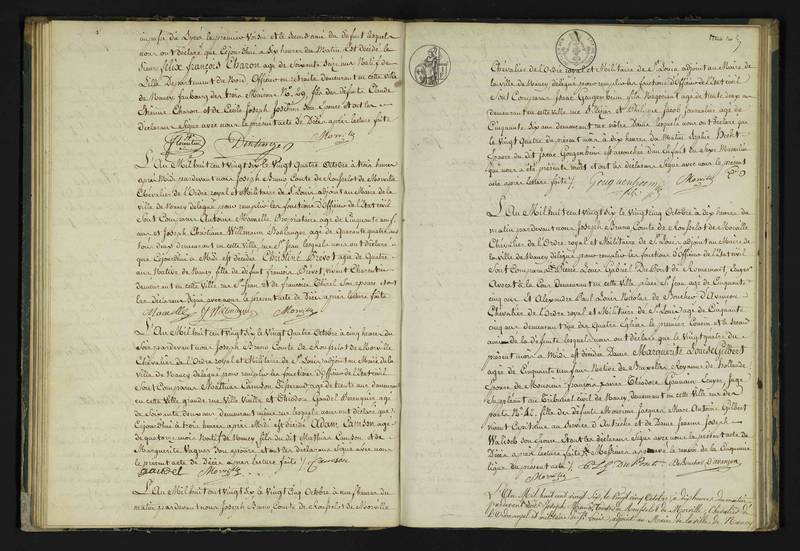 nous ont déclaré que Cejourd'hui à Six heures du Matin, est décédé le
Sieur Félix François Charon agé de Soixante Seize ans Natif de
Lille Département du Nord, Officier en retraite demeurant en cette ville
de Nancy faubourg des trois Maisons N.° 29, fils des défunts Claude
Étienne Charon et de
déclarans Signé avec nous le présent acte de Décès après lecture faite
Morville
L'An Mil huit cent Vingt Six le Vingt Quatre Octobre à trois heures
après Midi, pardevant nous Joseph Bruno Comte de Rousselot de Morville
Chevalier de l'Ordre royal et Militaire de St Louis adjoint au Maire de la
ville de Nancy délégué pour remplir les fonctions d'Officier de l'état civil
Sont Comparus Antoine Marcelle Propriétaire agé de Cinquante neuf
ans et Joseph Christianne Willemin Boulanger agé de Quarante quatre ans
tous deux demeurant en cette Ville, rue St Jean lesquels nous ont déclaré
que Cejourd'hui à Midi est décédée Christine Prevot agée de Quatre
ans Native de Nancy fille de défunt François Prevot, vivant Charentier
demeurant en cette Ville rue St Jean et de Françoise Thirel Son épouse et ont
les déclarans Signé avec nous le présent acte de Décès après lecture faite
Marcelle J Willemin Morville
L'An Mil huit cent Vingt Six le Vingt Quatre Octobre à cinq heures du
Soir, pardevant nous Joseph Bruno Comte de Rousselot de Morville
Chevalier de l'Ordre royal et Militaire de St Louis adjoint au Maire de la
Ville de Nancy délégué pour remplir les fonctions d'Officier de l'état civil
Sont Comparus Mathias Camson Tisserand agé de trente ans demeurant
en cette Ville grande rue Ville Vieille et Théodore Gaudel Perruquier agé
de Soixante deux ans demeurant même rue lesquels nous ont déclaré que
Cejourd'hui à trois heures après Midi est décédé Adam Camson agé
de quatorze mois Natif de Nancy fils du dit Mathias Camson et de
Marguerite Vagner Son épouse, et ont les déclarans Signé avec nous
le présent acte de Décès après lecture faite Camson
Gaudel Morville
L'An Mil huit cent Vingt Six le Vingt Cinq Octobre à neuf heures du
matin pardevant nous Joseph Bruno Comte de Rousselot de Morville
Chevalier de l'Ordre royal et Militaire de St Louis adjoint au Maire de
la ville de Nancy délégué pour remplir les fonctions d'Officier de l'état civil
Sont Comparus Isaac Gougenheim fils Négociant agé de trente six ans
demeurant en cette ville rue St Dizier et Jacob journalier agé de
Cinquante Six ans demeurant rue lesquels nous ont déclaré que
le Vingt Quatre du présent mois à dix heures du Matin Sophie Hecht
Épouse du dit Isaac Gougenheim est accouchée d'un Enfant du Sexe Masculin
qui nous a été présenté mort et ont les déclarans Signé avec nous le présent
acte après lecture faite Gougenheim fils Morville
L'An Mil huit cent vingt Six le Vingt cinq Octobre à dix heures du
matin pardevant nous Joseph Bruno Comte de Rousselot de Morville
Chevalier de l'Ordre royal et Militaire de St Louis adjoint au Maire de
la Ville de Nancy délégué pour remplir les fonctions d'Officier de l'état civil
Sont Comparus Pierre Louis Gabriel DuPont de Romémont, Écuyer
Avocat à la Cour demeurant en cette Ville, place St Jean agé de Cinquante
cinq ans et Alexandre Paul Louis Nicolas de
Chevalier de l'Ordre royal et Militaire de St Louis agé de Cinquante
cinq ans demeurant rue des Quatre Églises le premier Cousin et le second
ami de la défunte lesquels nous ont déclaré que le Vingt quatre du
présent mois à Midi est décédée Dame Marguerite Louise Gilbert
agée de Cinquante un ans Native de Bruxelles Royaume de Hollande
Épouse de Monsieur François Xavier Théodore Germain juge
Suppléant au Tribunal civil de Nancy demeurant en cette Ville rue de
N.° 42, fille des défunts Monsieur Jacques Marc Antoine Gilbert
vivant Capitaine au Service d'Autriche et de Dame Jeanne Joseph
Son épouse et ont les déclarans Signé avec nous le présent acte de
Décès après lecture faite
ligne du présent acte
Morville
L'An Mil huit cent vingt Six, le vingt cinq Octobre à dix heures du matin
pardevant nous Joseph Bruno Comte de Rousselot de Morville, Chevalier de
l'Ordre royal et militaire de St Louis adjoint au Maire de la ville de Nancy